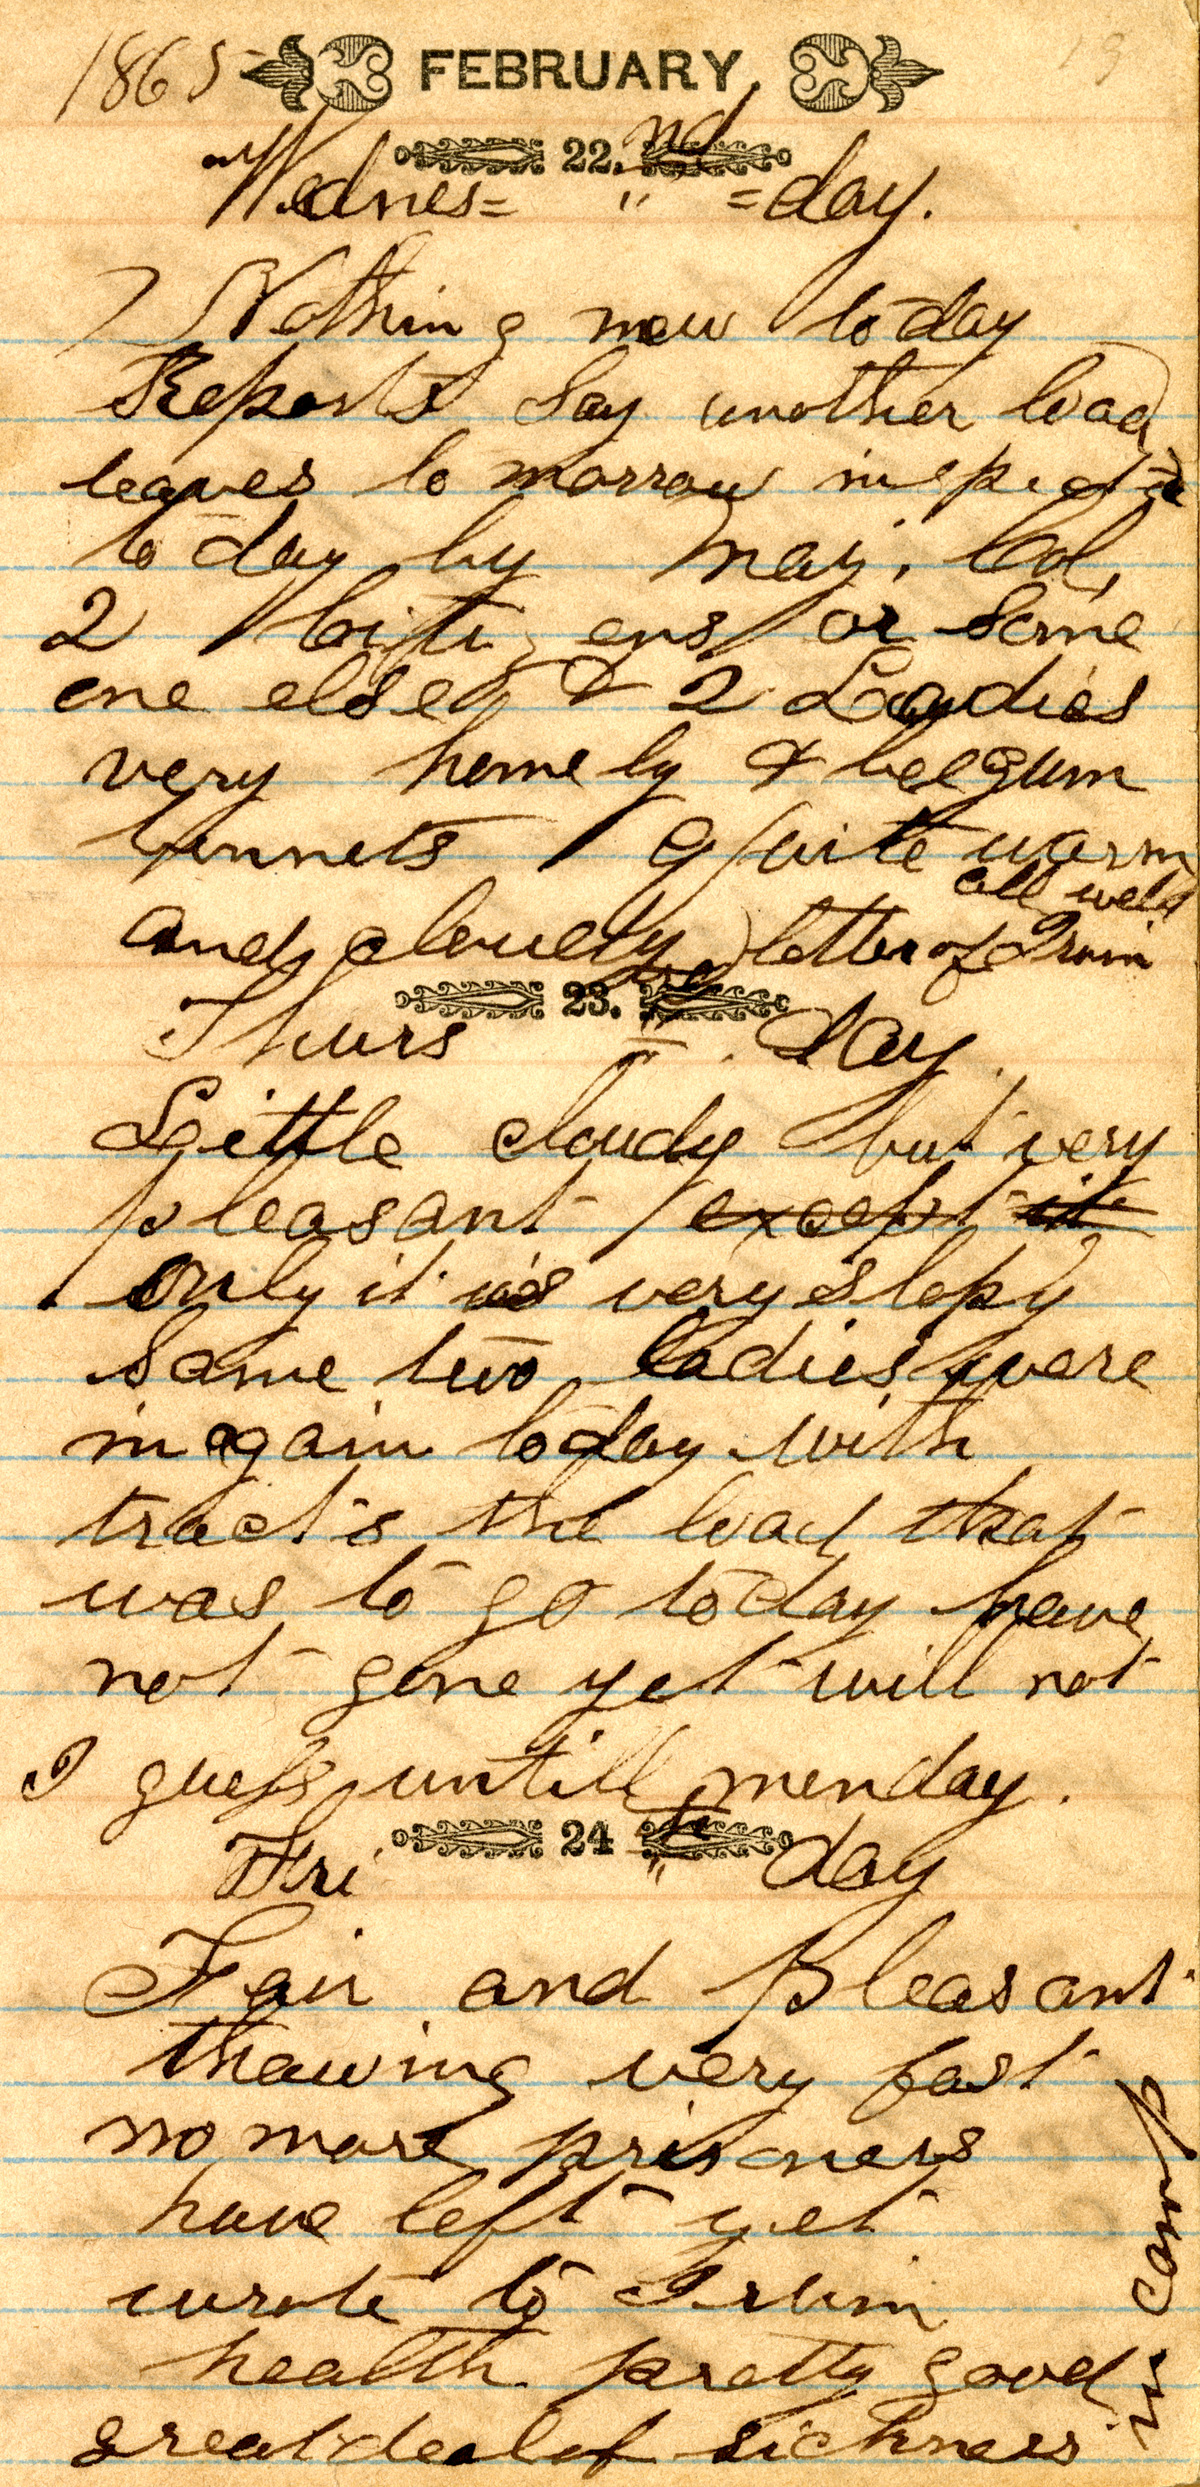 1865 FEBRUARY.
22. nd
Wednes= " =day.
Nothing new to day
Reports say another load
leaves to morrow inspected
to day by Maj. Col,
2 Citizens or some
one else & 2 Ladies
very homely &
bonnets / Quite warm
all well
and cloudy letter of Irvin
23. rd
Thurs " day.
Little cloudy but very
pleasant except it
only it is very slopy
Same two ladies were
in again today with
tracts the load that
was to go to day have
not gone yet will not
I guess untill monday.
24 th
Fri " day
Fair and Pleasant
thawing very fast
no more prisoners
have left yet
wrote to Irvin
health pretty good
great deal of sickness
in camp